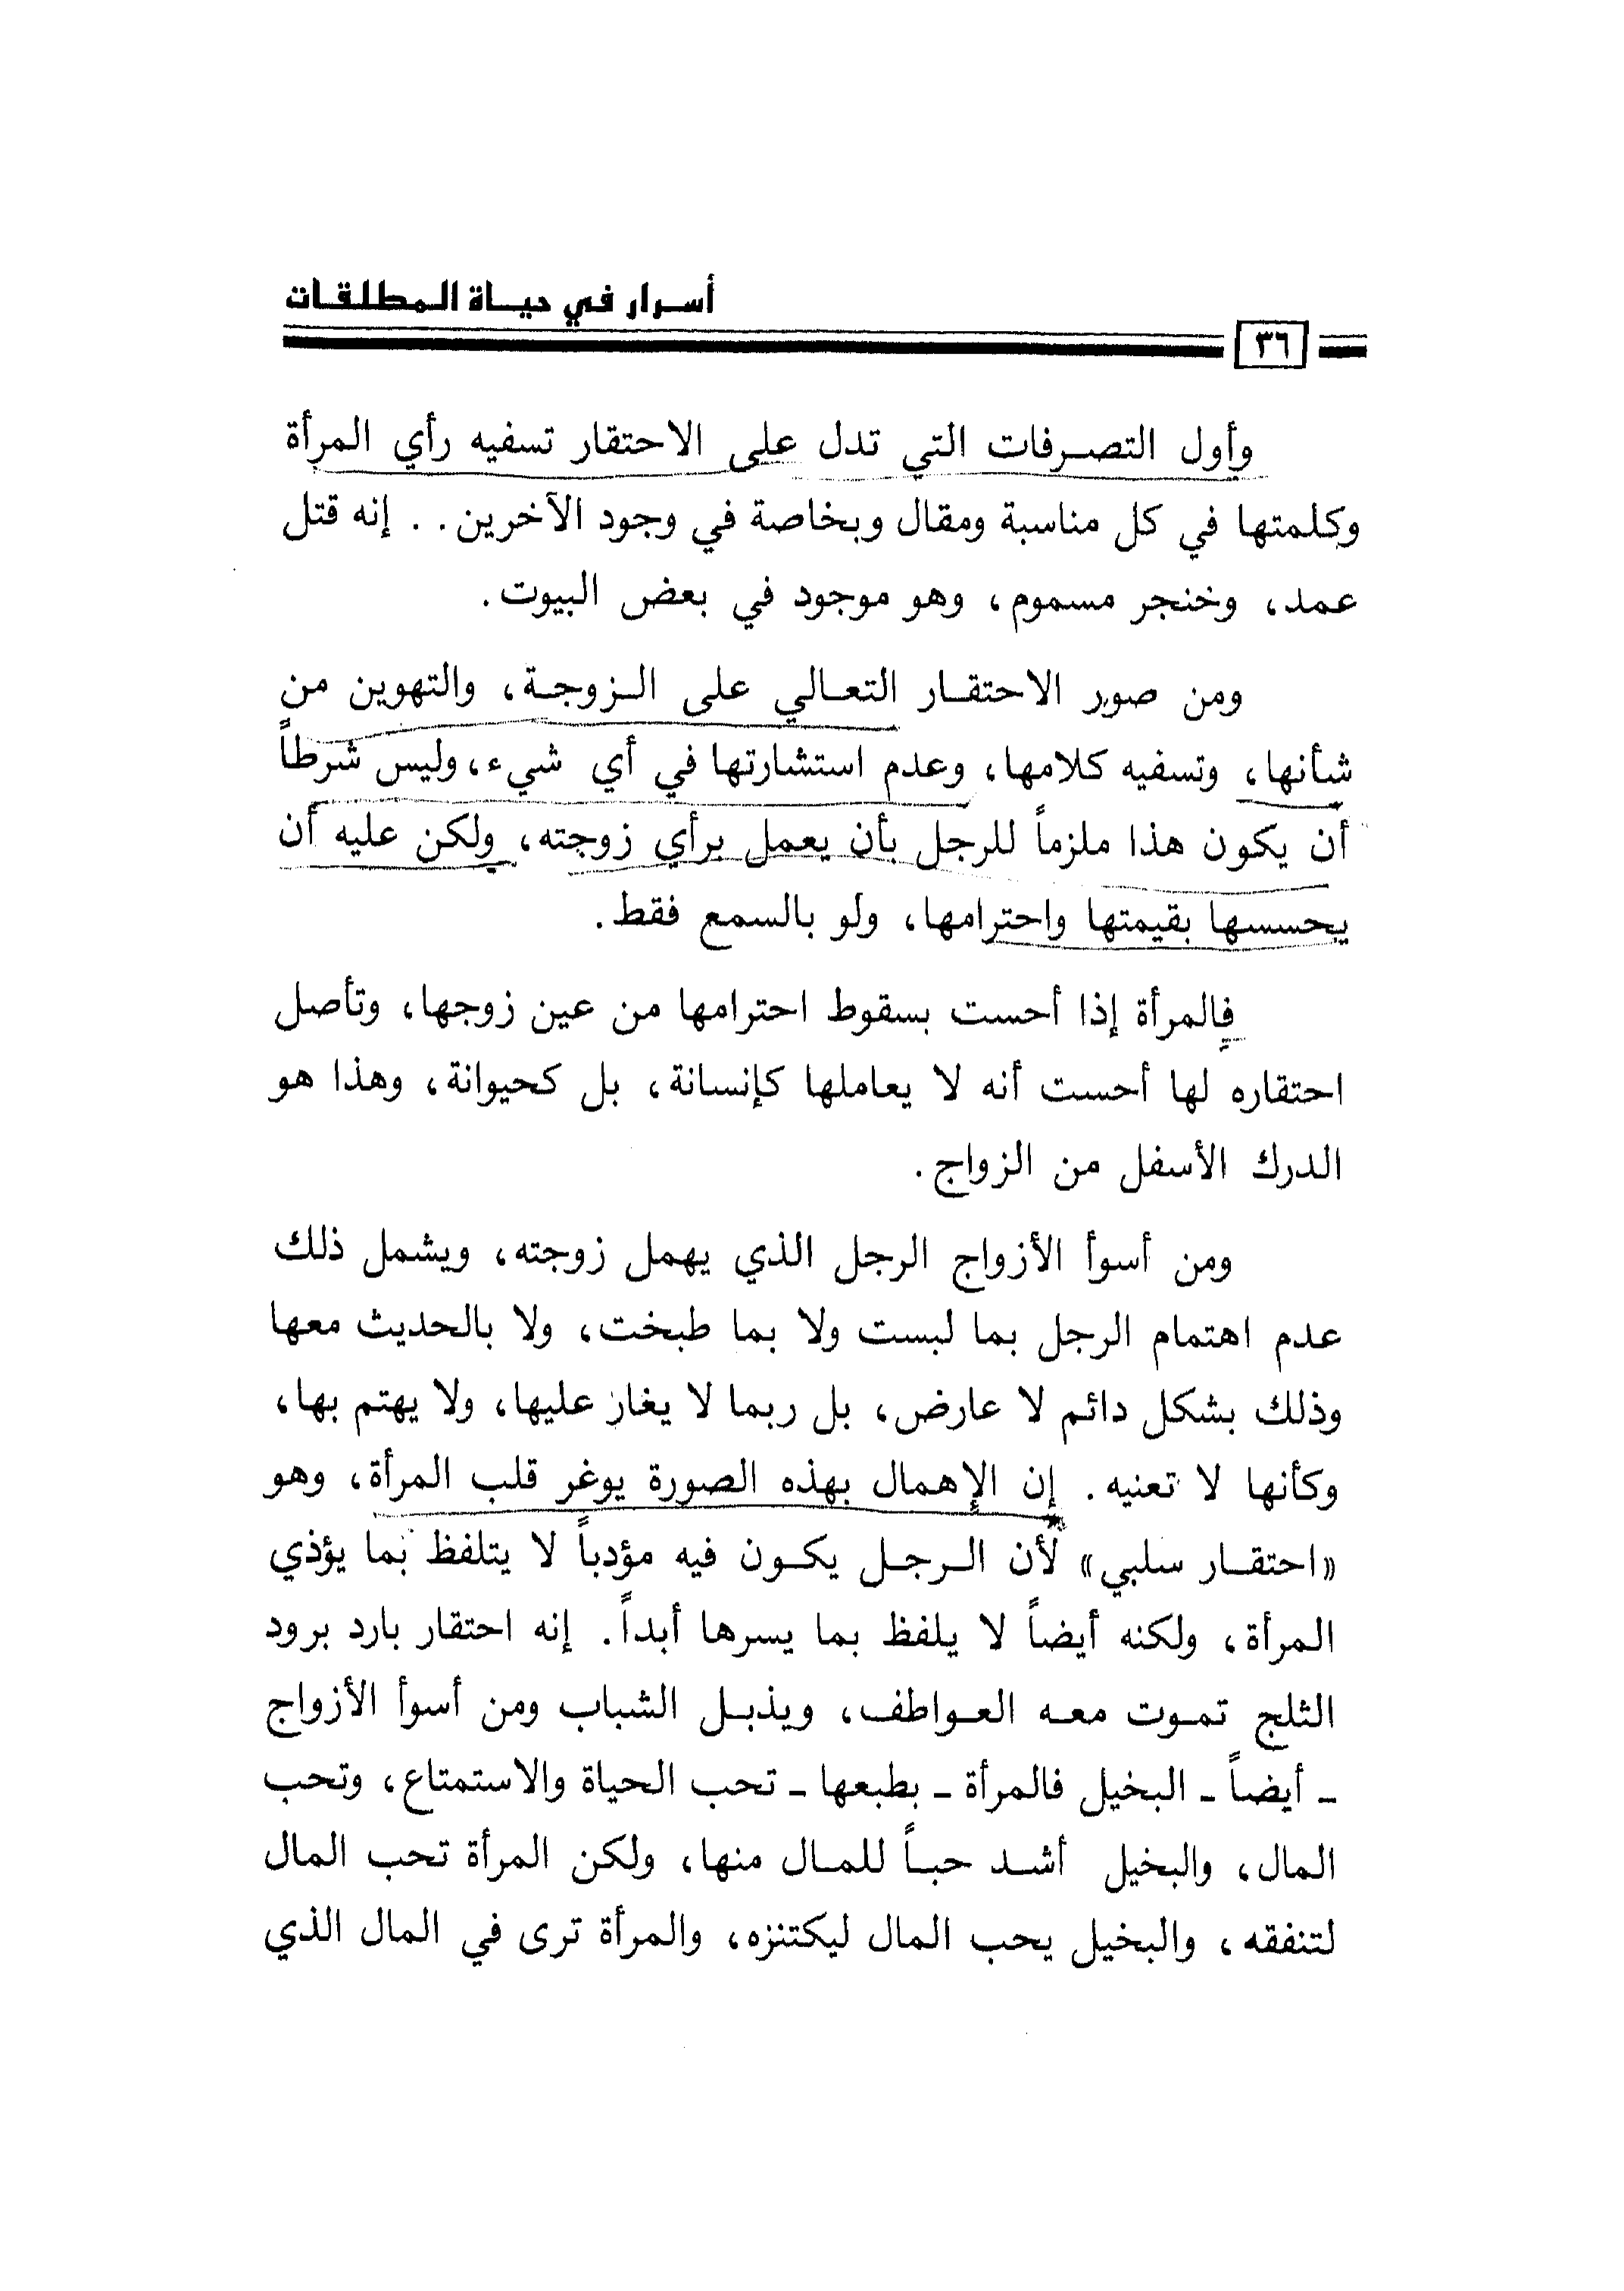 أسرار في حياة المطلقات
٣٦
وأول التصرفات التي تدل على الاحتقار تسفيه رأي المرأة
وكلمتها في كل مناسبة ومقال وبخاصة في وجود الآخرين. . إنه قتل
عمد، وخنجر مسموم، وهو موجود في بعض البيوت.
ومن صور الاحتقار التعالي على الزوجة، والتهوين من
شأنها، وتسفيه كلامها، وعدم استشارتها في أي شيء، وليس شرطاً
أن يكون هذا ملزماً للرجل بأن يعمل برأي زوجته، ولكن عليه أن
يحسسها بقيمتها واحترامها، ولو بالسمع فقط.
فالمرأة إذا أحست بسقوط احترامها من عين زوجها، وتأصل
احتقاره لها أحست أنه لا يعاملها كإنسانة، بل كحيوانة، وهذا هو
الدرك الأسفل من الزواج.
ومن أسوأ الأزواج الرجل الذي يهمل زوجته، ويشمل ذلك
عدم اهتمام الرجل بما لبست ولا بما طبخت، ولا بالحديث معها
وذلك بشكل دائم لا عارض، بل ربما لا يغار عليها، ولا يهتم بها،
وكأنها لا تعنيه. إن الإهمال بهذه الصورة يوغر قلب المرأة، وهو
«احتقار سلبي» لأن الرجل يكون فيه مؤدباً لا يتلفظ بما يؤذي
المرأة، ولكنه أيضاً لا يلفظ بما يسرها أبداً. إنه احتقار بارد برود
الثلج تموت معه العواطف، ويذبل الشباب ومن أسوأ الأزواج
ـ أيضاً ـ البخيل فالمرأة ـ بطبعها ـ تحب الحياة والاستمتاع، وتحب
المال، والبخيل أشد حباً للمال منها، ولكن المرأة تحب المال
لتنفقه، والبخيل يحب المال ليكتنزه، والمرأة ترى في المال الذي